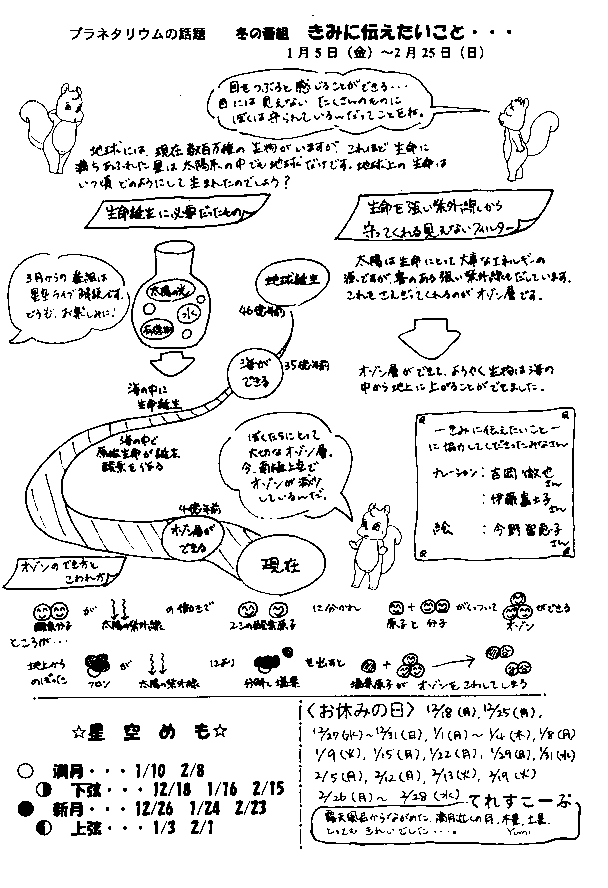 プラネタリウムの話題　冬の番組　きみに伝えたいこと・・・
1月5日（金）～2月25日（日）
目をつぶると感じることができる・・・
目には見えない たくさんのものに
ぼくは守られている～だってことをね。
地球には、現在数百万種の生物がいますが、これほど生命に
満ちあふれた星は太陽系の中でも地球だけです。地球上の生命は
いつ頃どのようにして生まれたのでしょう？
生命誕生に必要だったもの
生命を強い紫外線から
守ってくれる見えないフィルター
太陽は生命にとって大事なエネルギーの
源ですが、害のある強い紫外線もだしています。
これをさえぎってくれるのがオゾン層です。
3月からの番組は
星空ライブ解説です。
どうぞ、お楽しみに！
太陽の光
水
地球誕生
46億年前
海が
できる
35億年前
海の中に
生命誕生
オゾン層ができて、ようやく生物は海の
中から地上に上がることができました。
海の中で
原始生命が誕生
酸素を作る
ぼくたちにとって
大切なオゾン層。
今、南極上空で
オゾンが減少
しているんだ。
4億年前
オゾン層が
できる
現在
ーきみに伝えたいことー
に協力してくださったみなさん
ナレーション：吉岡
さん
：伊藤富士子
さん
絵　：今野
さん
オゾンのでき方と
こわれ方
酸素分子 が 太陽の紫外線 の働きで 2コの酸素原子 に分かれ 原子と分子 がくっついて オゾン ができる
ところが・・・
地上から
のぼった フロン が 太陽の紫外線 により 分解し塩素 を出すと 塩素原子が オゾンをこわしてしまう
☆星空めも☆
○　満月・・・1/10　2/8
下弦・・・12/18　1/16　2/15
●　新月・・・12/26　1/24　2/23
上弦・・・1/3　2/1
〈お休みの日〉12/18（月）、12/25（月）、
12/27（水）～12/31（日）、1/1（月）～1/4（木）、1/8（月）
1/9（火）、1/15（月）、1/22（月）、1/29（月）、1/31（水）
2/5（月）、2/12（月）、2/13（火）、2/19（火）
2/26（月）～2/28（水）
てれすこーぷ
露天風呂からながめた、満月 の月、木星、土星、
とってもきれいでした・・・。 Yumi